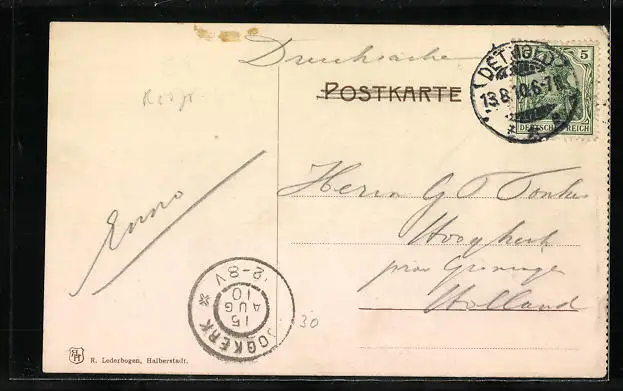 Drucksache
POSTKARTE
DETMOLD
13.8.10.6-7N
5
DEUTSCHES REICH
Enno
Herrn G T Tonkes
Hoogkerk
prov Groningen
Holland
HOOGKERK
15
AUG
10
12-8V
30
R. Lederbogen, Halberstadt.